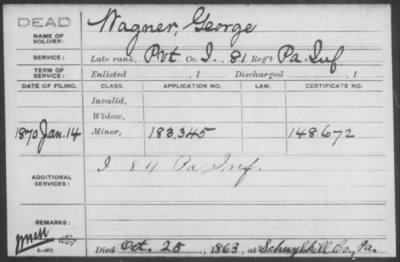 DEAD
NAME OF SOLDIER: Wagner, George
SERVICE: Late rank, Pvt Co. I, 81 Reg't Pa. Inf
TERM OF SERVICE: Enlisted , 1 Discharged , 1
DATE OF FILING. CLASS. APPLICATION NO. LAW. CERTIFICATE NO.
Invalid,
Widow,
1870 Jan. 14 Minor, 183,345 148672
ADDITIONAL SERVICES: I 84 Pa Inf.
REMARKS:
Died Oct. 25, 1863, at Schuylkill Co., Pa.